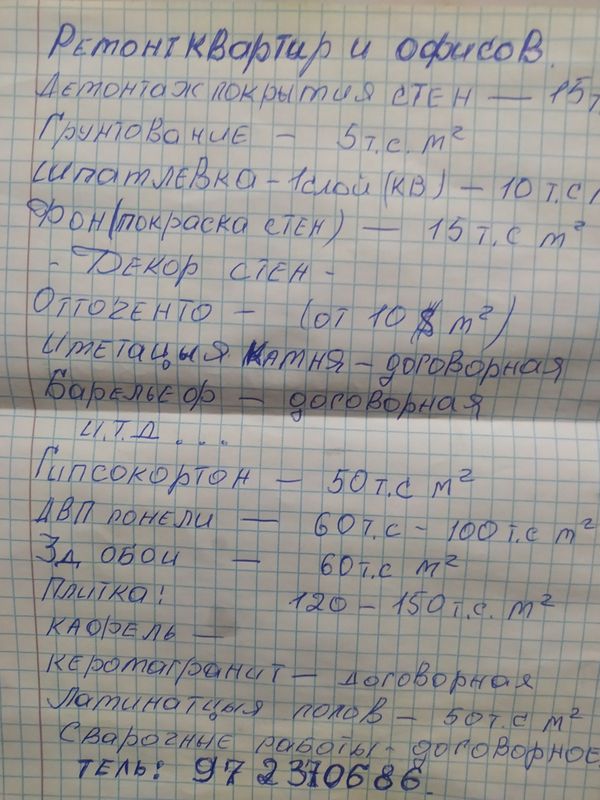 Ремонт квартир и офисов.
Демонтаж покрытия стен — 15т.
Грунтование – 5т.с. м²
Шпатлевка – 1слой (кв) – 10 т.с
Фон (покраска стен) — 15 т.с м²
- Декор стен -
Отточенто – (от 10 $ м²)
Иметацыя камня – договорная
Барельеф — договорная
и.т.д ...
Гипсокортон — 50 т.с м²
ДВП понели — 60т.с – 100т.с м²
3д обои — 60т.с м²
Плитка: 120 – 150т.с. м²
кафрель —
керомагранит – договорная
Латинатцыя полов – 50т.с м²
Сварочные работы - договорное,
тель: 97 2370686.